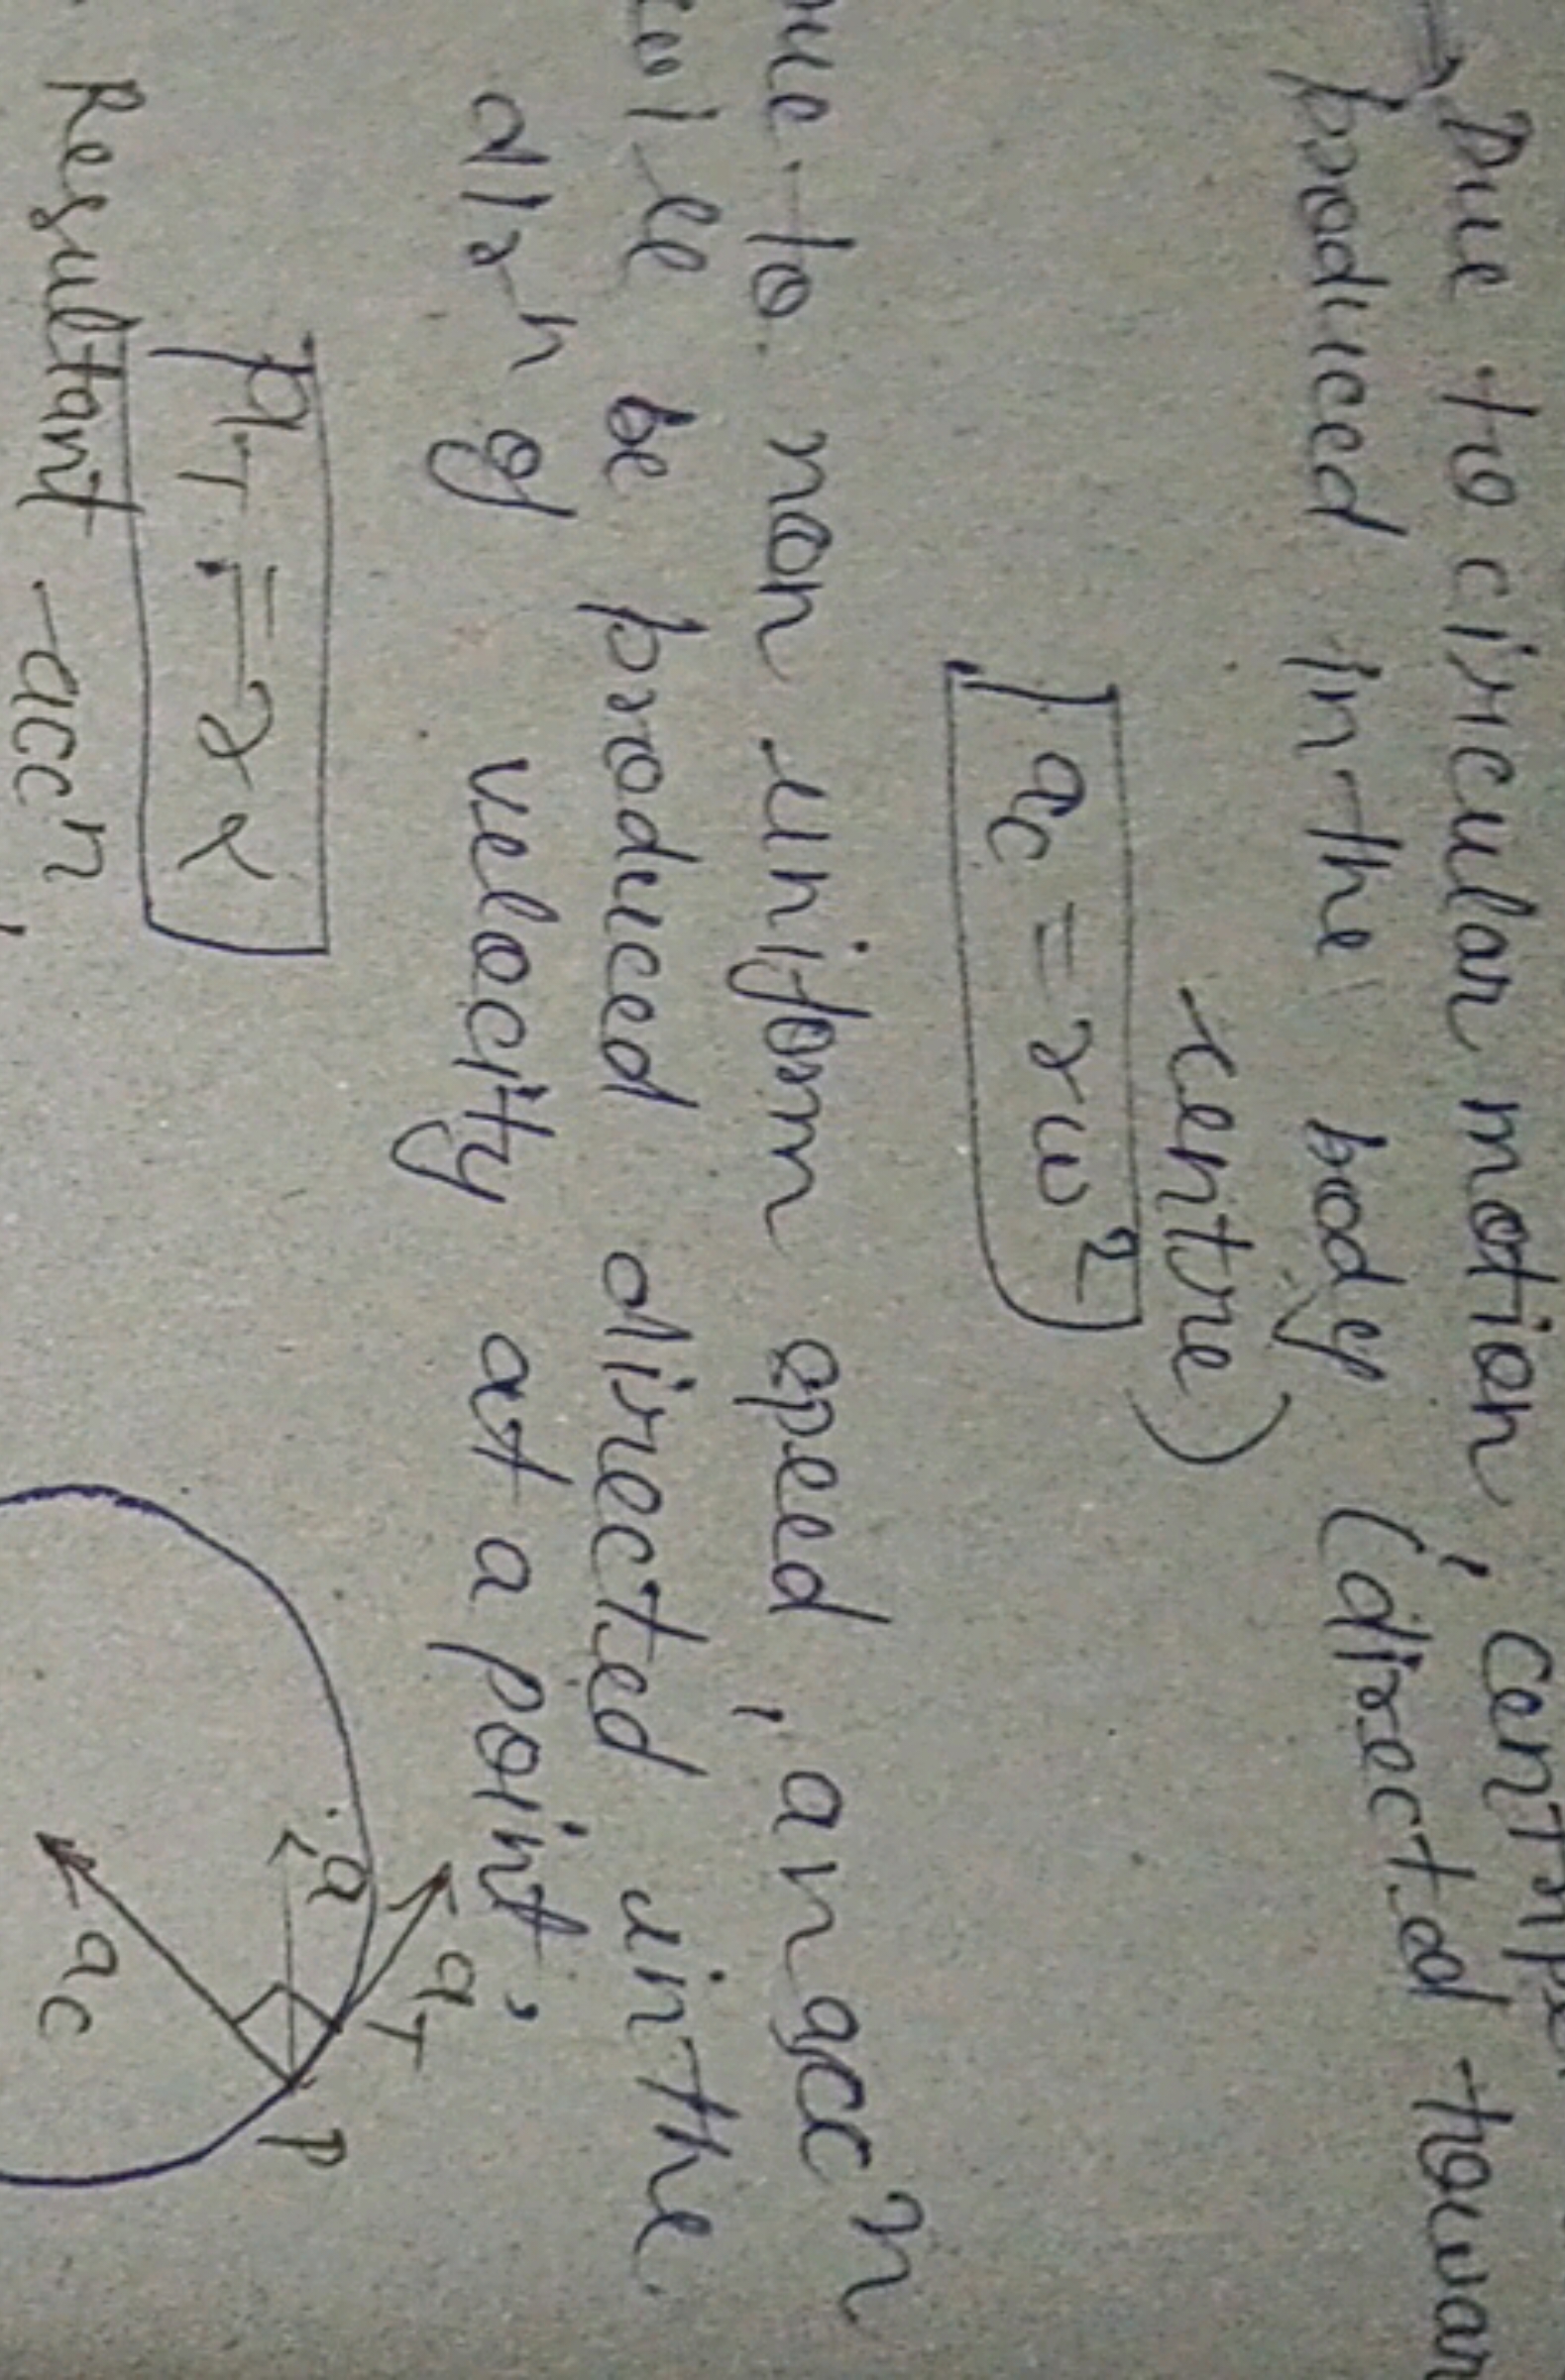 → Due to circular motion, centripe
produced in the body (directed towar
centre)
ac = rω²
ue to non uniform speed, an accn
will be produced directed in the
dirn of velocity at a point,
aT = rα
Resultant accn
aT
a
ac
P